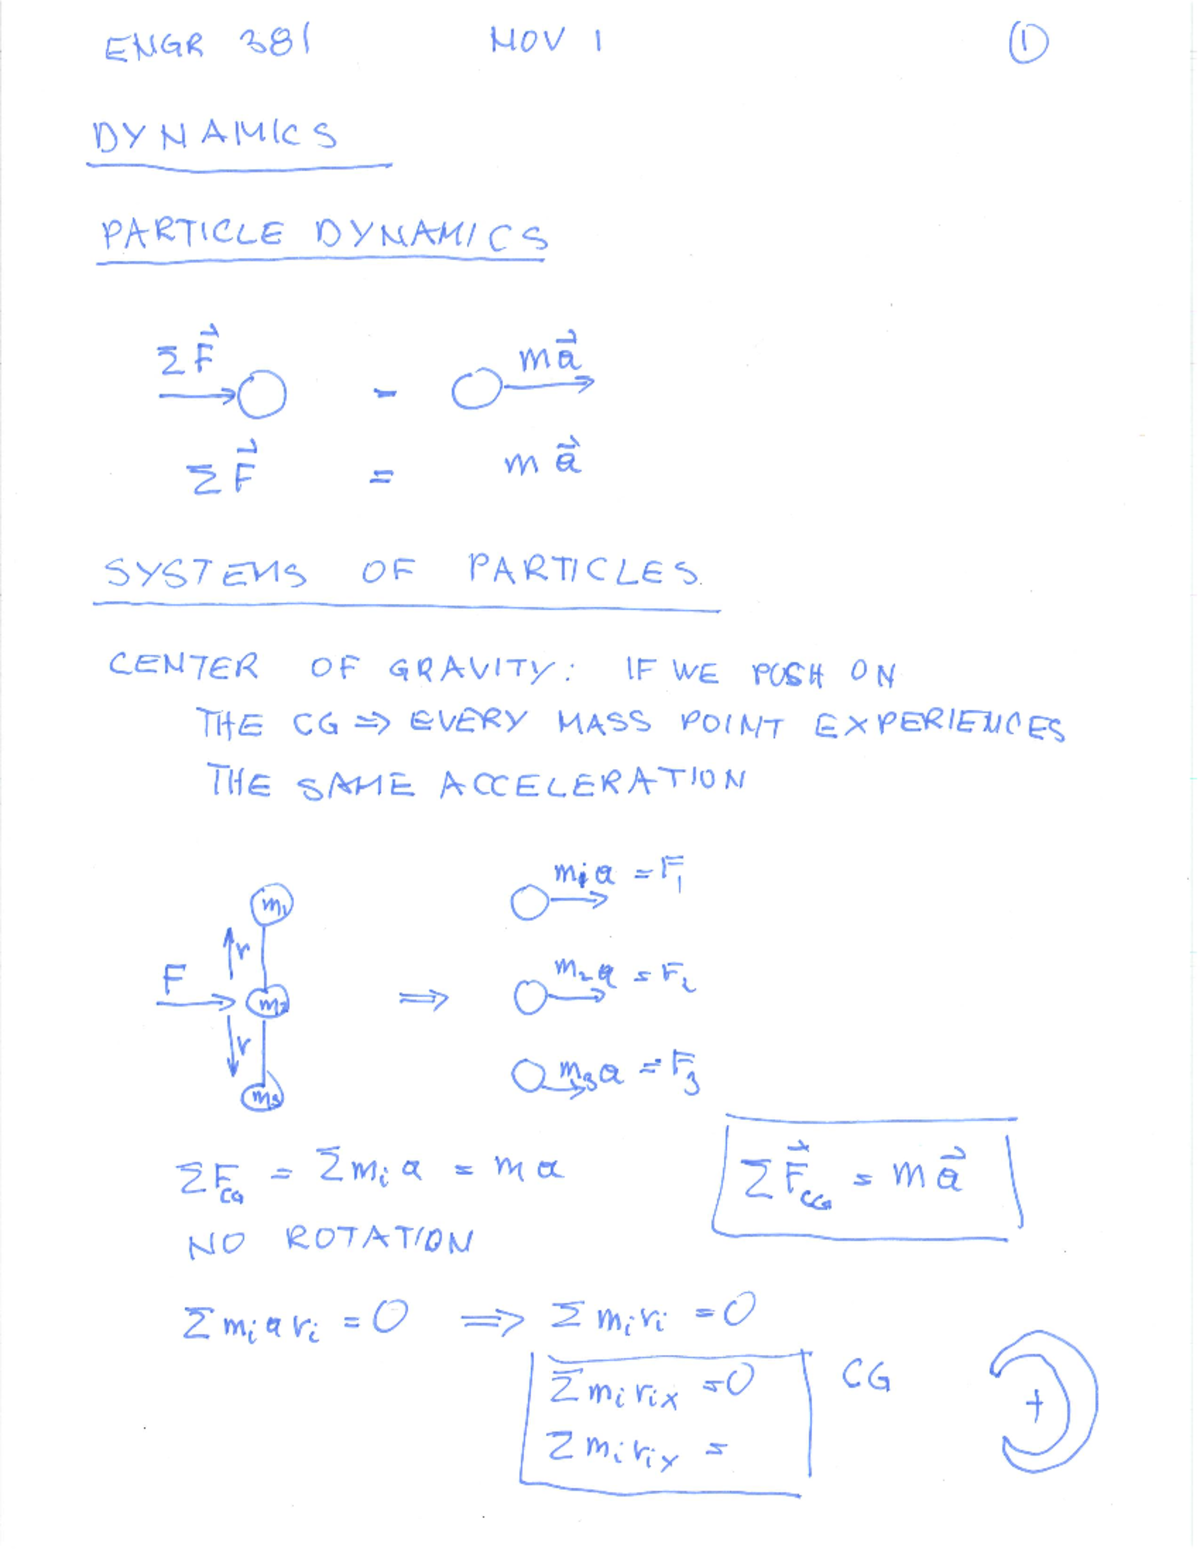 ENGR 381 NOV 1 ①
DYNAMICS
PARTICLE DYNAMICS
ΣF⃗ - ma⃗
ΣF⃗ = ma⃗
SYSTEMS OF PARTICLES.
CENTER OF GRAVITY: IF WE PUSH ON
THE CG ⇒ EVERY MASS POINT EXPERIENCES
THE SAME ACCELERATION
m₁ m₁a = F₁
r
F m₂ ⇒ m₂a = F₂
r
m₃ m₃a = F₃
ΣF_CG = Σmᵢa = ma
ΣF⃗_CG = ma⃗
NO ROTATION
Σmᵢarᵢ = 0 ⇒ Σmᵢrᵢ = 0
Σmᵢrᵢₓ = 0 CG +
Σmᵢrᵢₓ =